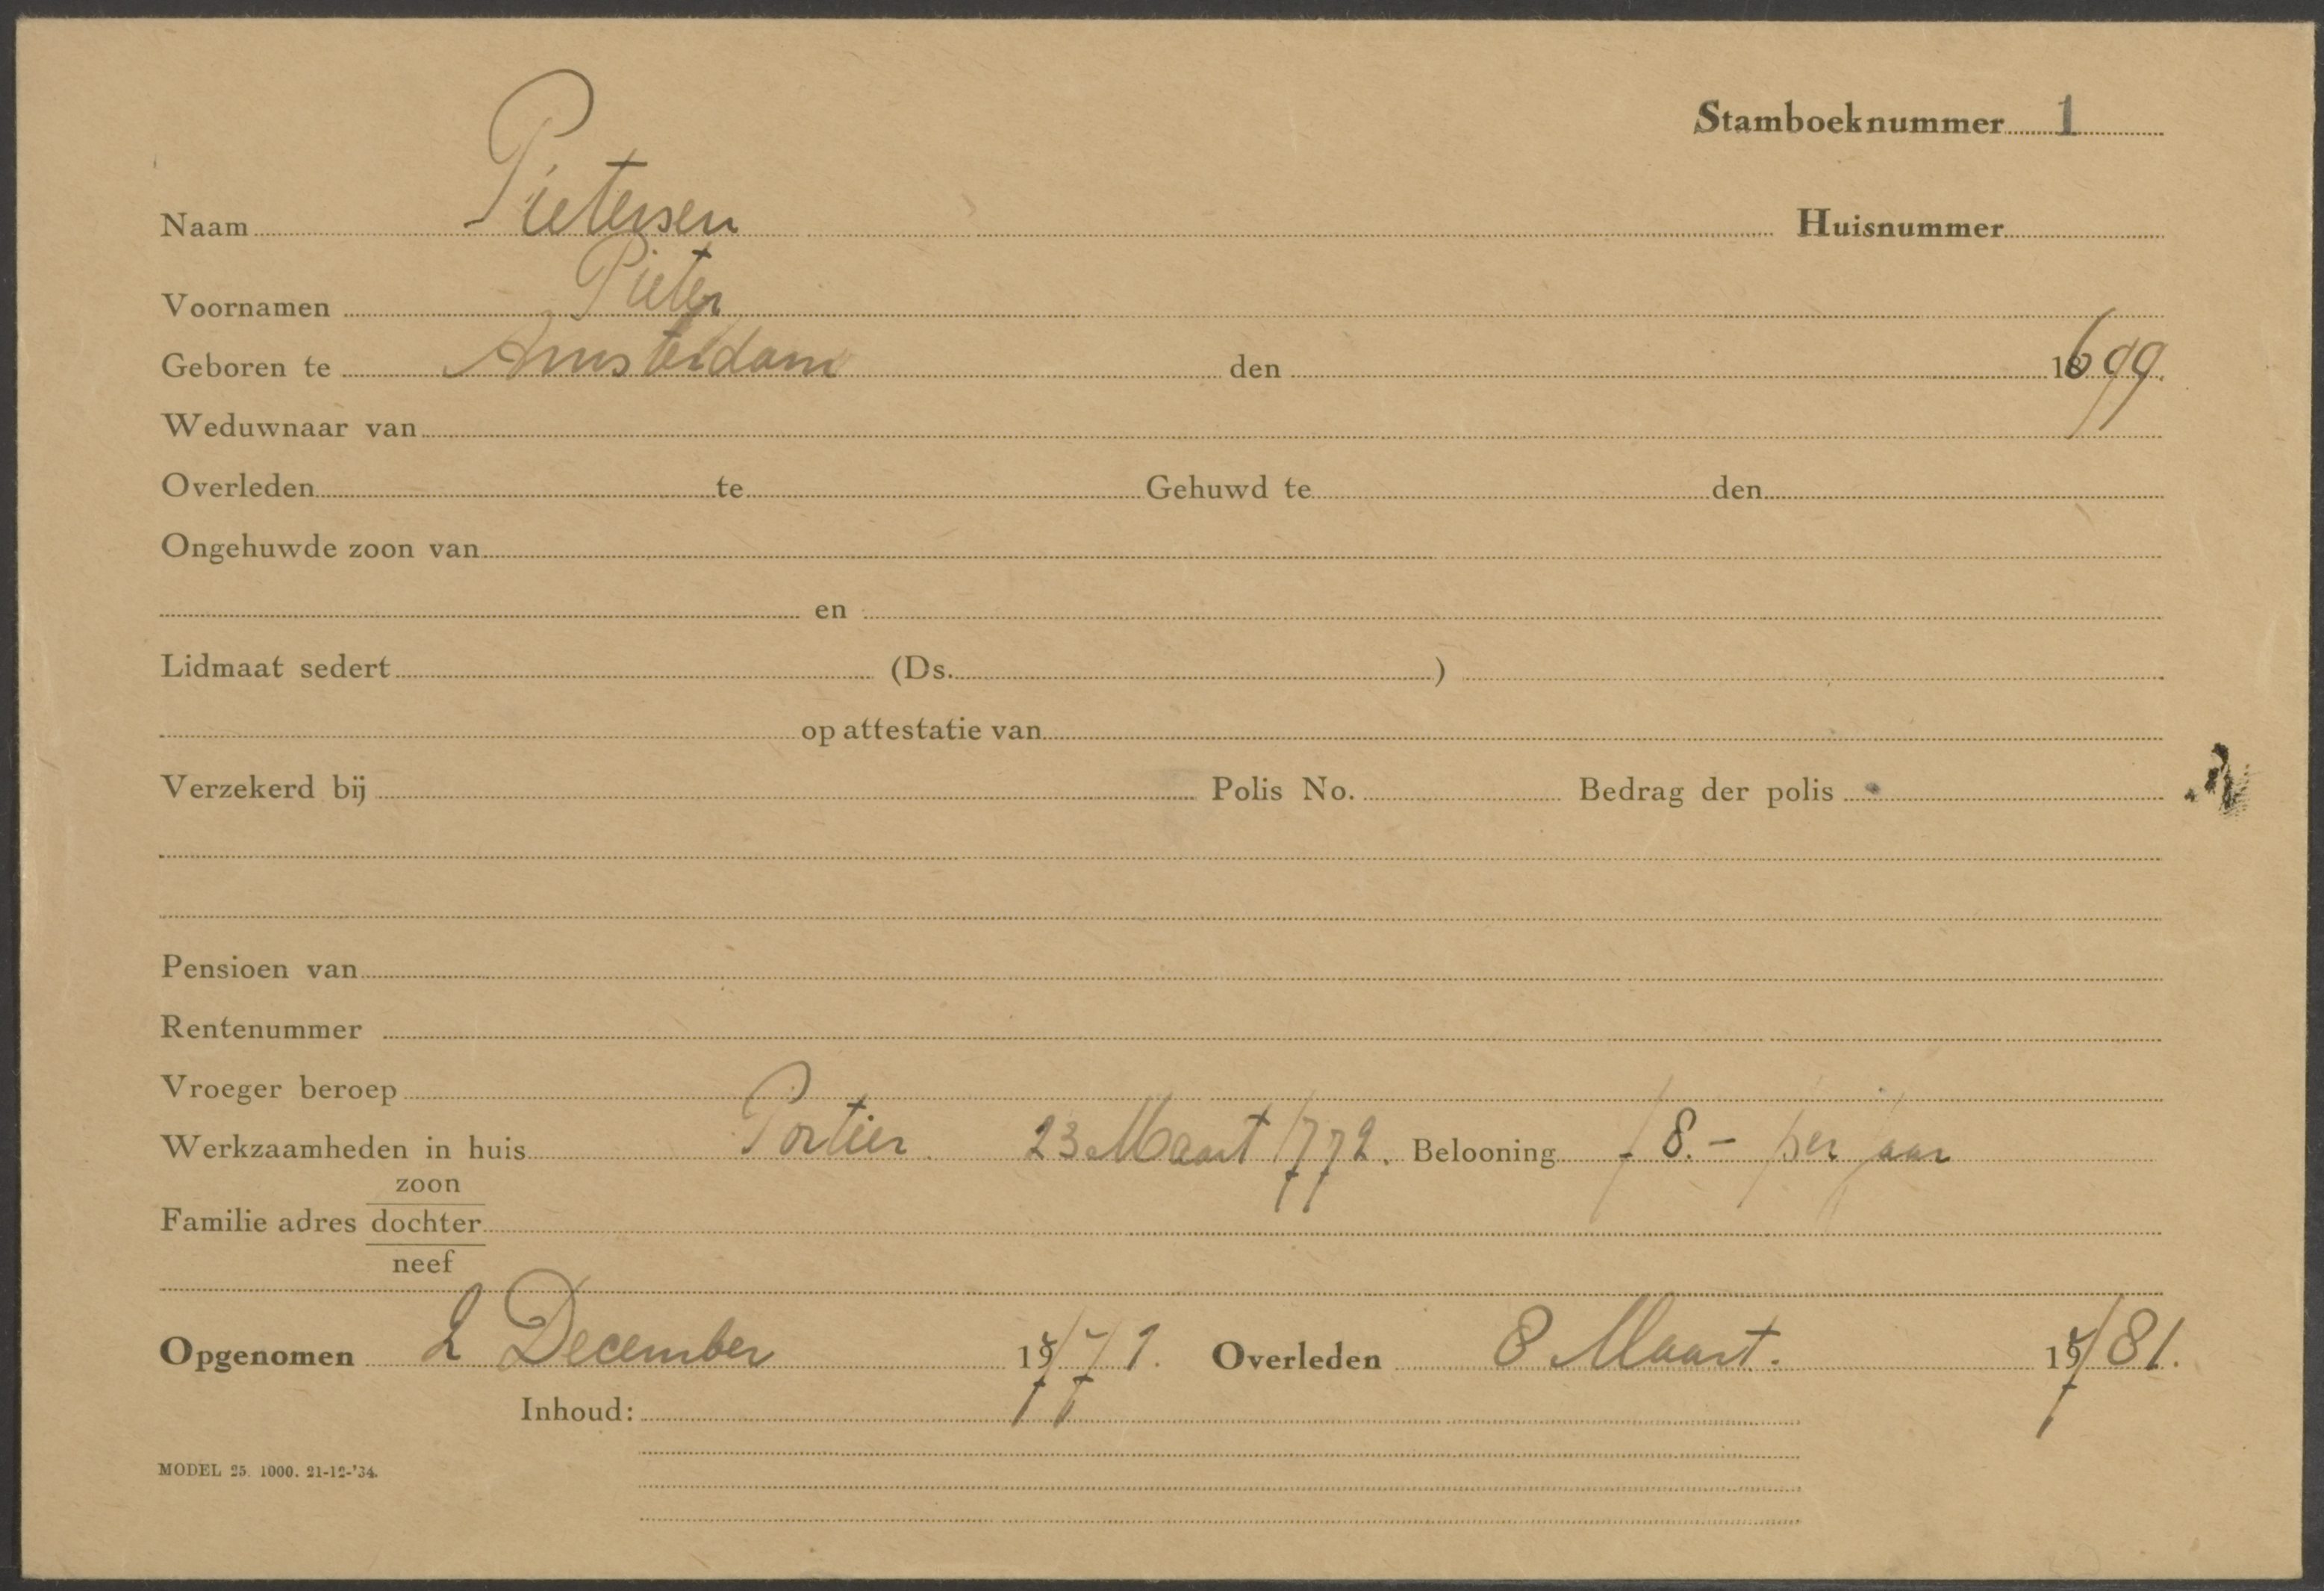 Stamboeknummer 1
Naam Pietersen Huisnummer
Voornamen Pieter
Geboren te Amsterdam den 1699.
Weduwnaar van
Overleden te Gehuwd te den
Ongehuwde zoon van
en
Lidmaat sedert (Ds. )
op attestatie van
Verzekerd bij Polis No. Bedrag der polis
Pensioen van
Rentenummer
Vroeger beroep
Werkzaamheden in huis Portier. 23 Maart 1772. Belooning f 8.- per jaar
zoon
Familie adres dochter
neef
Opgenomen 2 December 1771. Overleden 8 Maart. 1781.
Inhoud:
MODEL 25. 1000. 21-12-'34.